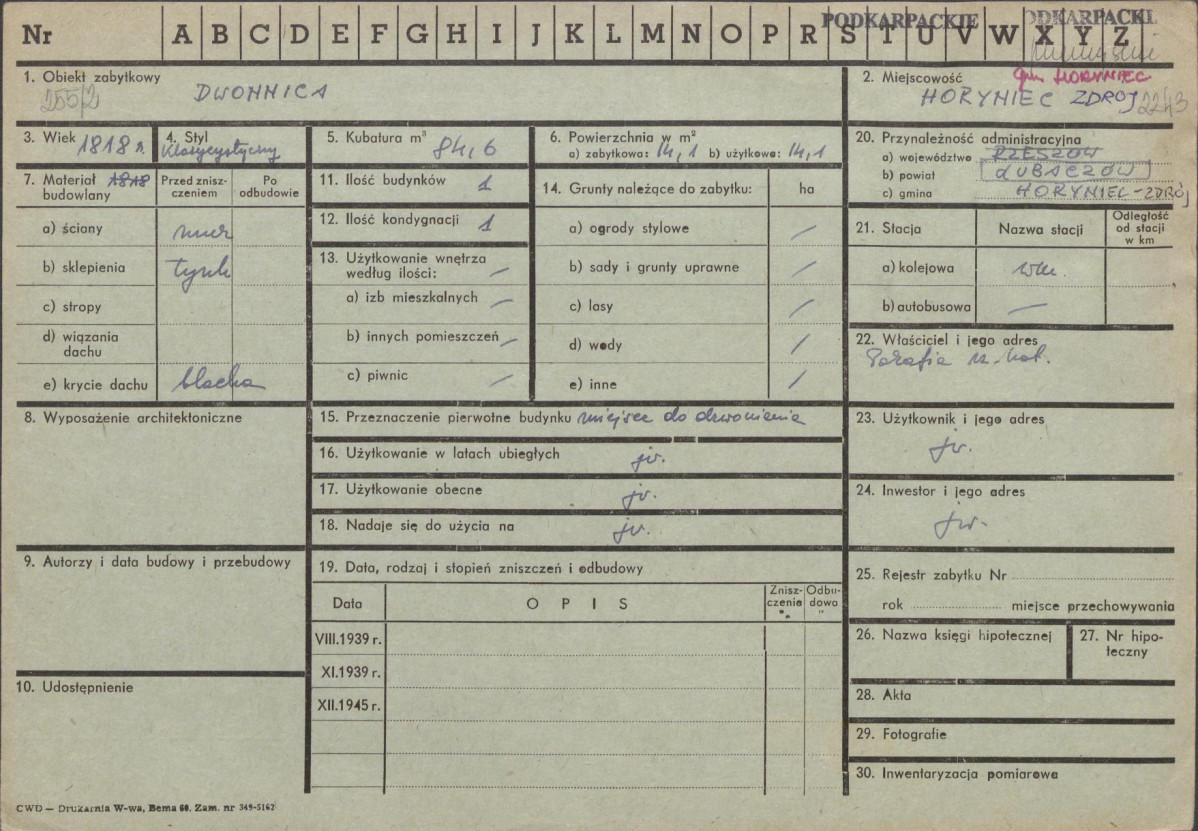 PODKARPACKIE
Nr A B C D E F G H I J K L M N O P R S T U V W X Y Z
1. Obiekt zabytkowy
255/2
DWONNICA
2. Miejscowość
gm. HORYNIEC
HORYNIEC ZDRÓJ 2243
3. Wiek 1818 r.
4. Styl
Klasycystyczny
5. Kubatura m³ 84,6
6. Powierzchnia w m²
a) zabytkowa: 14,1 b) użytkowa: 14,1
7. Materiał 1818
budowlany
Przed znisz-
czeniem
Po
odbudowie
a) ściany mur
b) sklepienia tynk
c) stropy
d) wiązania
dachu
e) krycie dachu blacha
8. Wyposażenie architektoniczne
9. Autorzy i data budowy i przebudowy
10. Udostępnienie
11. Ilość budynków 1
12. Ilość kondygnacji 1
13. Użytkowanie wnętrza
według ilości: —
a) izb mieszkalnych —
b) innych pomieszczeń —
c) piwnic —
14. Grunty należące do zabytku: ha
a) ogrody stylowe /
b) sady i grunty uprawne /
c) lasy /
d) wody /
e) inne /
15. Przeznaczenie pierwotne budynku miejsce do dzwonienia
16. Użytkowanie w latach ubiegłych jw.
17. Użytkowanie obecne jw.
18. Nadaje się do użycia na jw.
19. Data, rodzaj i stopień zniszczeń i odbudowy
Data OPIS
Znisz-
czenia
%
Odbu-
dowa
"
VIII.1939 r.
XI.1939 r.
XII.1945 r.
20. Przynależność administracyjna
a) województwo RZESZÓW
b) powiat LUBACZÓW
c) gmina HORYNIEC-ZDRÓJ
21. Stacja Nazwa stacji
Odległość
od stacji
w km
a) kolejowa
b) autobusowa —
22. Właściciel i jego adres
Parafia rz. kat.
23. Użytkownik i jego adres
jw.
24. Inwestor i jego adres
jw.
25. Rejestr zabytku Nr
rok miejsce przechowywania
26. Nazwa księgi hipotecznej
27. Nr hipo-
teczny
28. Akta
29. Fotografie
30. Inwentaryzacja pomiarowa
CWD — Drukarnia W-wa, Bema 60. Zam. nr 349-5162